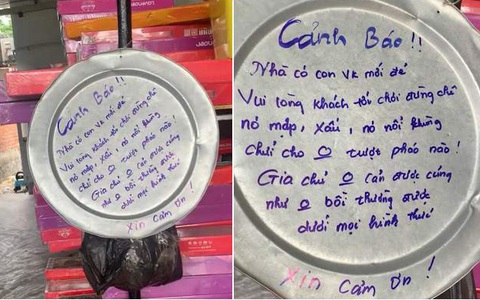 Cảnh Báo !!
Nhà có con vk mới đẻ
Vui lòng khách tới chơi đừng chê
nó mập, xấu, nó nổi khùng
chửi cho O trượt phát nào !
Gia chủ O cản được cũng
như O bồi thường dưới
dưới mọi hình thức
Xin Cảm Ơn !
Cảnh Báo !!
Nhà có con vk mới đẻ
Vui lòng khách tới chơi đừng chê
nó mập, xấu, nó nổi khùng
chửi cho O trượt phát nào !
Gia chủ O cản được cũng
như O bồi thường dưới
dưới mọi hình thức
Xin Cảm Ơn !